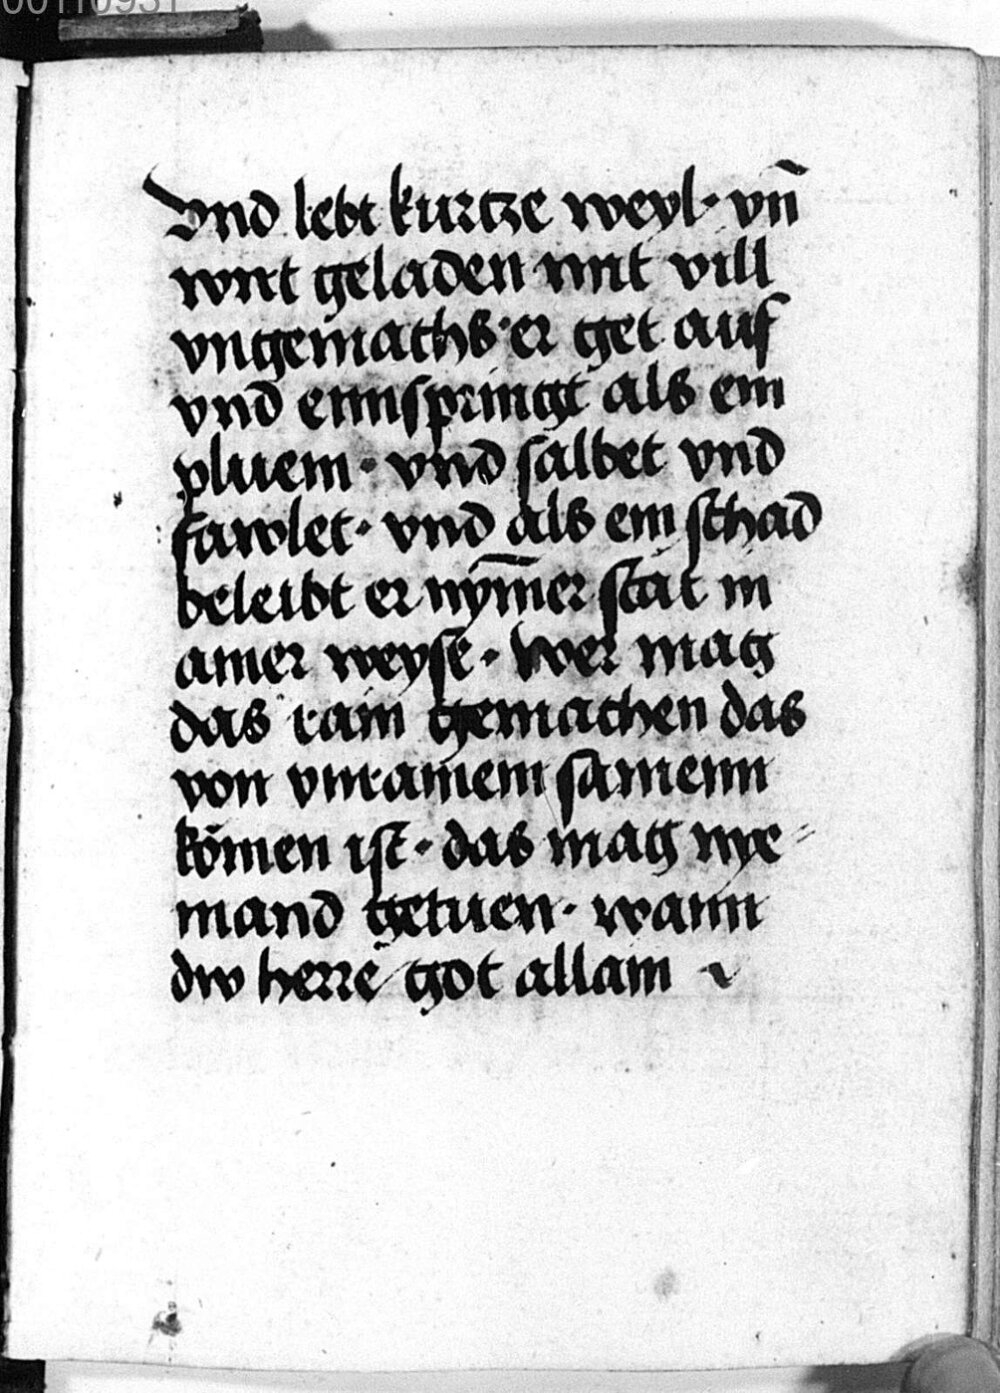 00110931
Vnd lebt kurtze weyl · vn̄
wirt geladen mit vill
vngemachs · er get auf
vnd einnspringt als ein
pluem · vnd salbet vnd
fawlet · vnd als ein schad
beleibt er nym̄er stät in
ainer weyse · Wer mag
das rain gemachen das
von vnrainem samenn
kömen ist · das mag nye-
mand getuen · wann
dw herre got allain